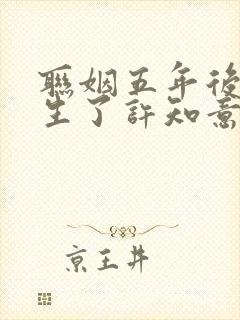 聯姻五年後
生了許知意
京王井